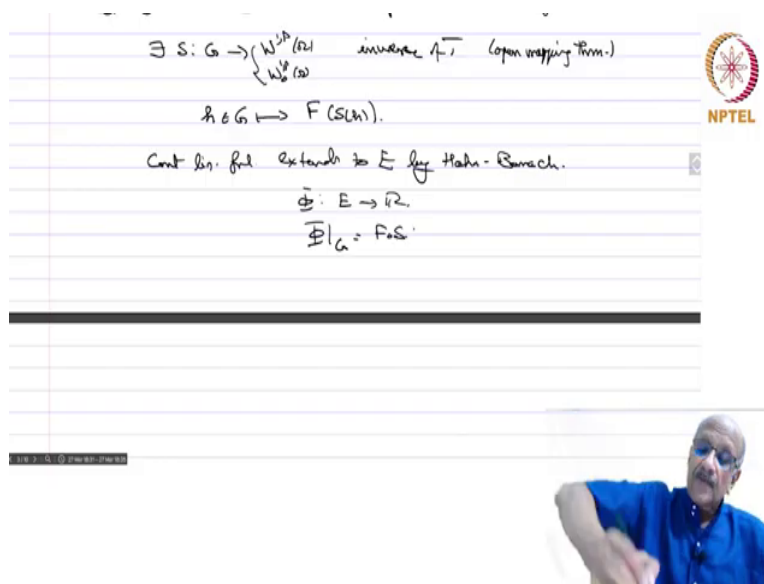 ∃ S: G → { W^{1,p}(Ω) inverse of T. (open mapping Thm.)
W_0^{1,p}(Ω)
h ∈ G ⟼ F(S(h)).
Cont lin. fnl. extends to E by Hahn-Banach.
Φ: E → ℝ.
Φ|_G = F∘S.
NPTEL